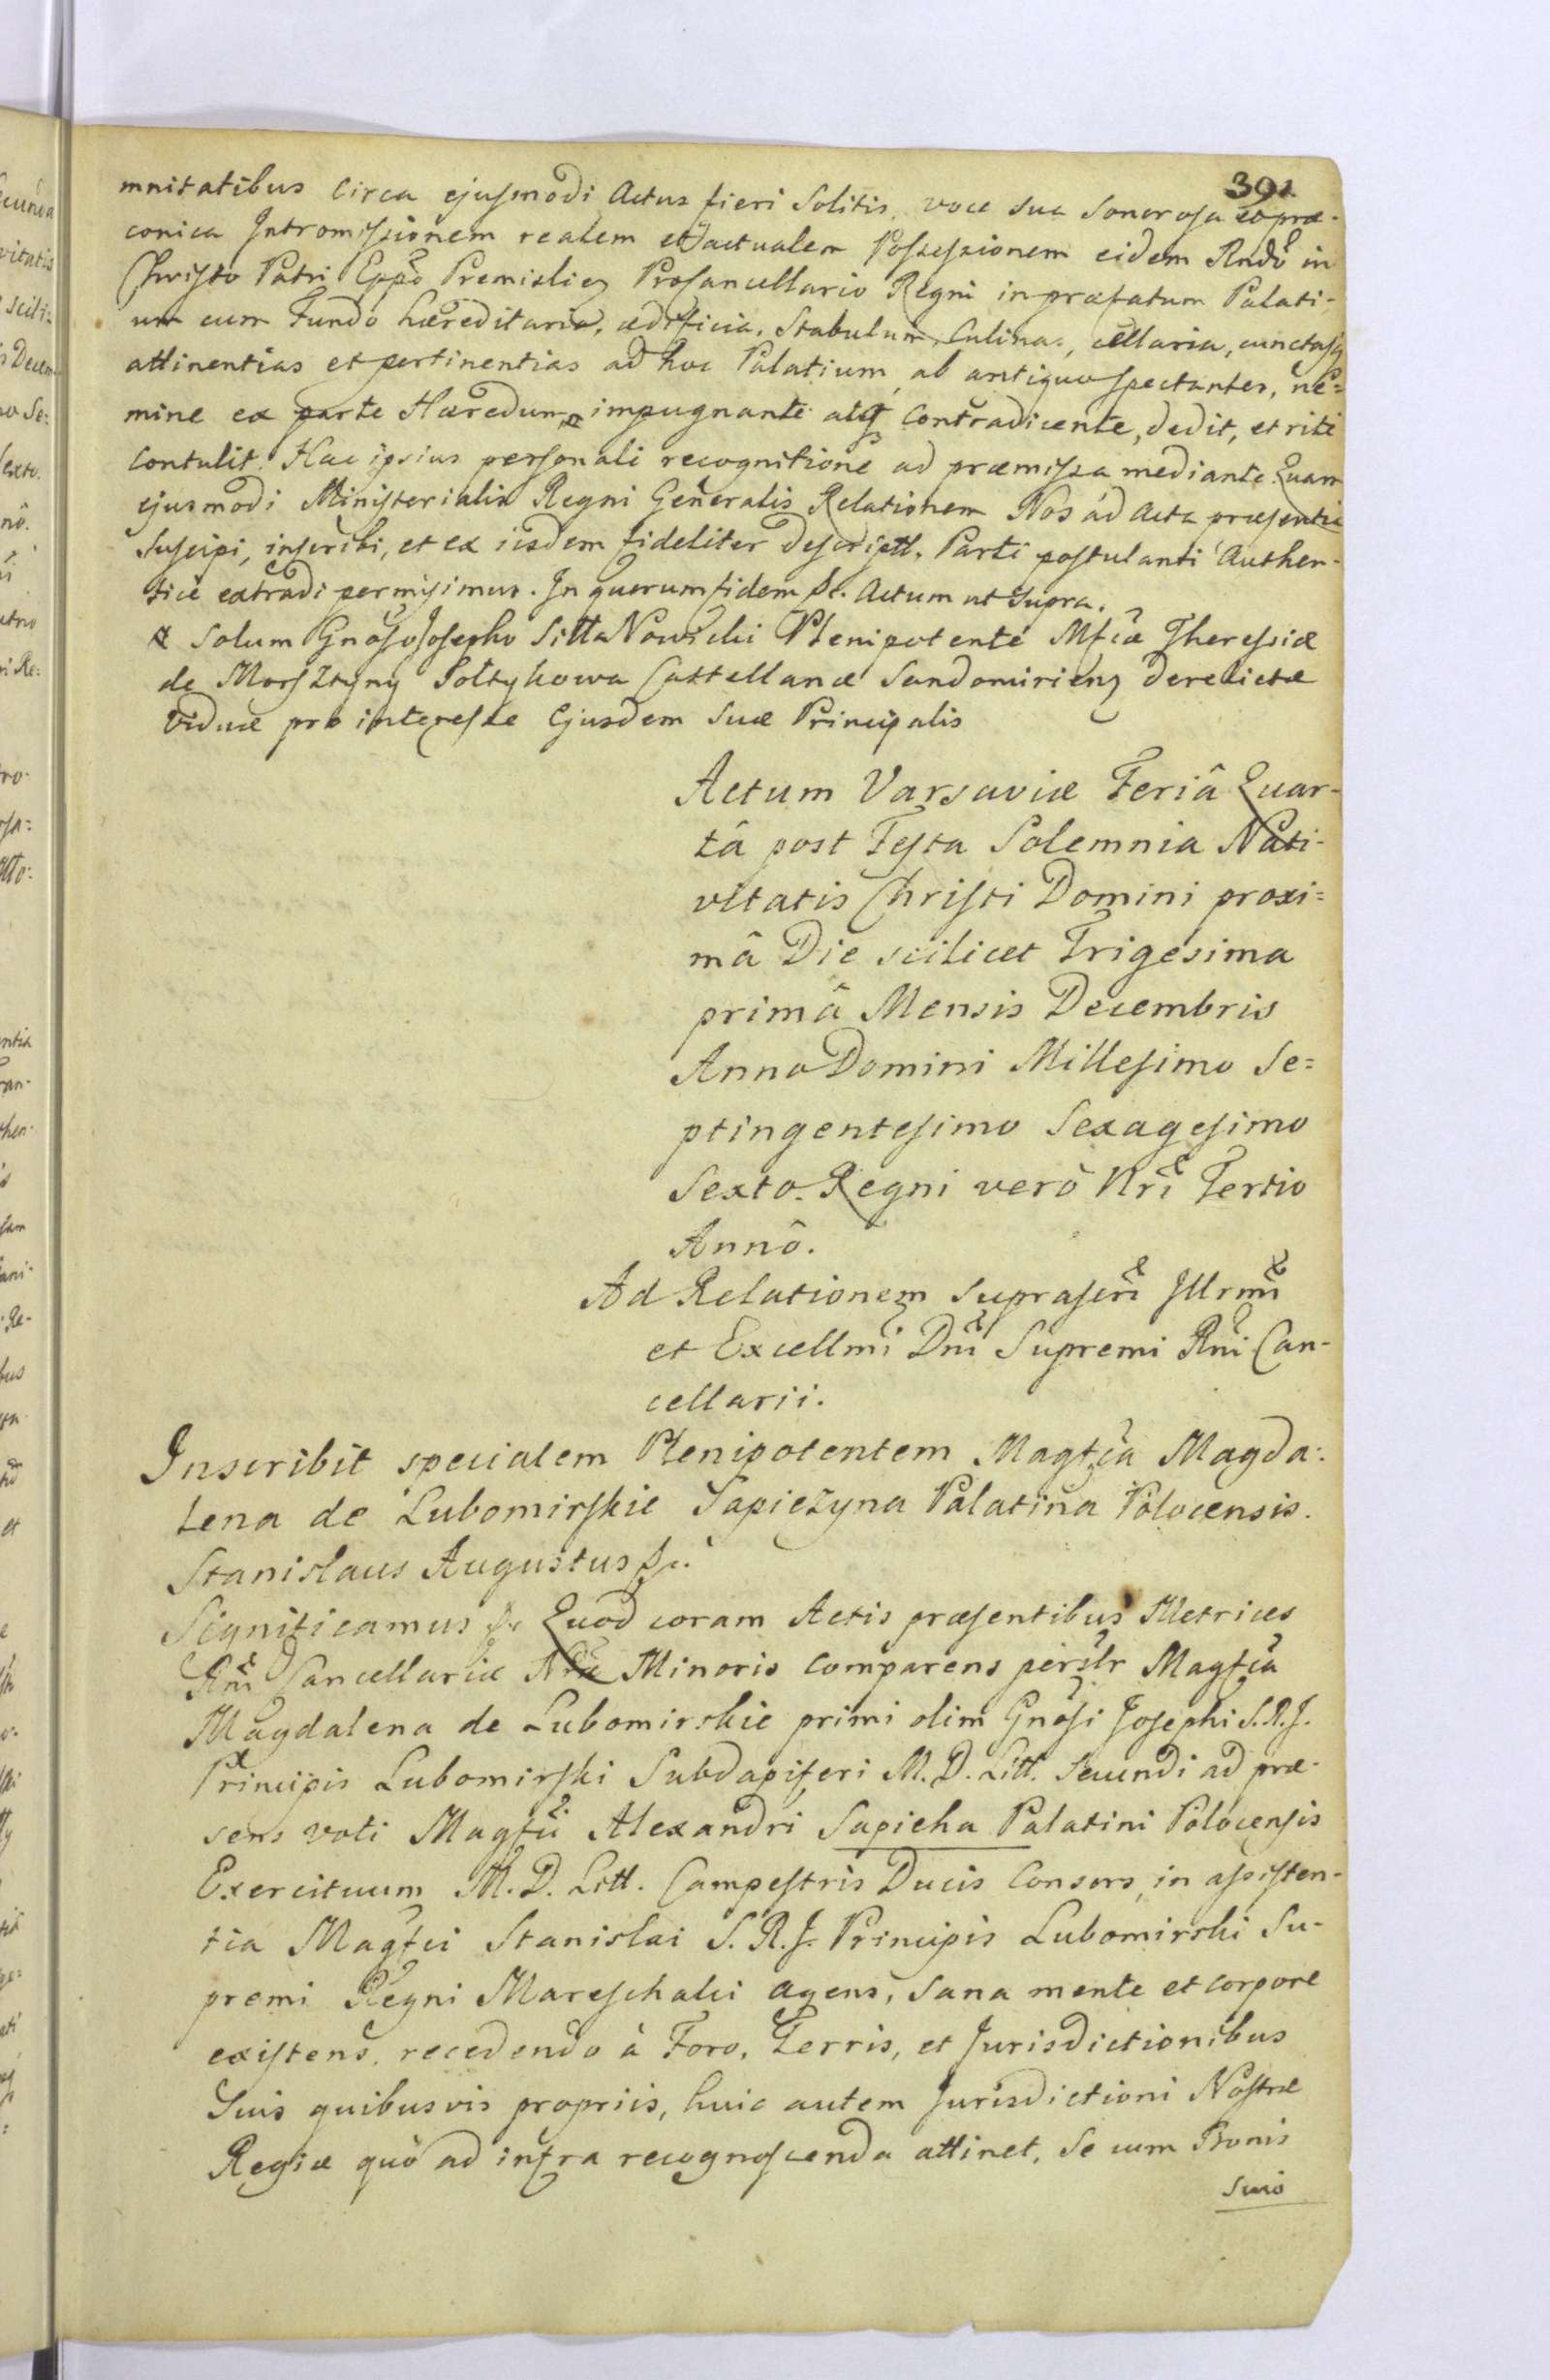 391
mnitatibus circa ejusmodi Actus fieri Solitis, voce sua sonorosa et præ-
conica Intromissionem realem et actualem Possessionem eidem Rndo in
Christo Patri Eppo Premislieñ Procancellario Regni in præfatum Palati-
um cum Fundo hæreditario, ædificia, Stabulum, Culinas, cellaria, cunctasq
attinentias et pertinentias ad hoc Palatium ab antiquo spectantes, ne=
mine ex parte Hæredum, impugnante atq Contradicente, dedit, et rite
contulit. Hac ipsius personali recognitione ad præmissa mediante. Quam
ejusmodi Ministerialis Regni Generalis Relationem Nos ad Acta præsentia
Suscipi, inscribi, et ex iisdem fideliter descriptt. Parti postulanti Authen-
ticè extradi permisimus. In quorum fidem &c. Actum ut supra.
Solum Gnoso Josepho Sitta Nowicki Plenipotente Mfcæ Theressiæ
de Morsztyny Soltykowa Castellanæ Sandomirieñ derelictæ
viduæ pro interesse Ejusdem suæ Principalis
Actum Varsaviæ Feriâ Quar-
tâ post Festa Solemnia Nati-
vitatis Christi Domini proxi=
mâ Die scilicet Trigesima
primâ Mensis Decembris
Anno Domini Millesimo Se=
ptingentesimo Sexagesimo
Sexto. Regni verò Nri Tertio
Annô.
Ad Relationem suprascri Illrmi
et Excellmi Dni Supremi Rni Can-
cellarii.
Inscribit specialem Plenipotentem Magfca Magda:
lena de Lubomirskie Sapiezyna Palatina Polocensis.
Stanislaus Augustus &c.
Significamus &c Quod coram Actis præsentibus Metrices
Rni Cancellariæ Nræ Minoris comparens persłr Magfca
Magdalena de Lubomirskie primi olim Gnosi Josephi S.R.J.
Principis Lubomirski Subdapiferi M.D. Litt. Secundi ad præ-
sens voti Magfci Alexandri Sapieha Palatini Polocensis
Exercituum M.D. Litt. Campestris Ducis Consors, in assisten-
tia Magfci Stanislai S.R.J. Principis Lubomirski Su-
premi Regni Mareschalci agens, sana mente et corpore
existens, recedendo à Foro, Terris, et Jurisdictionibus
Suis quibusvis propriis, huic autem Jurisdictioni Nostræ
Regiæ quò ad infra recognoscenda attinet, Se cum Bonis
suis